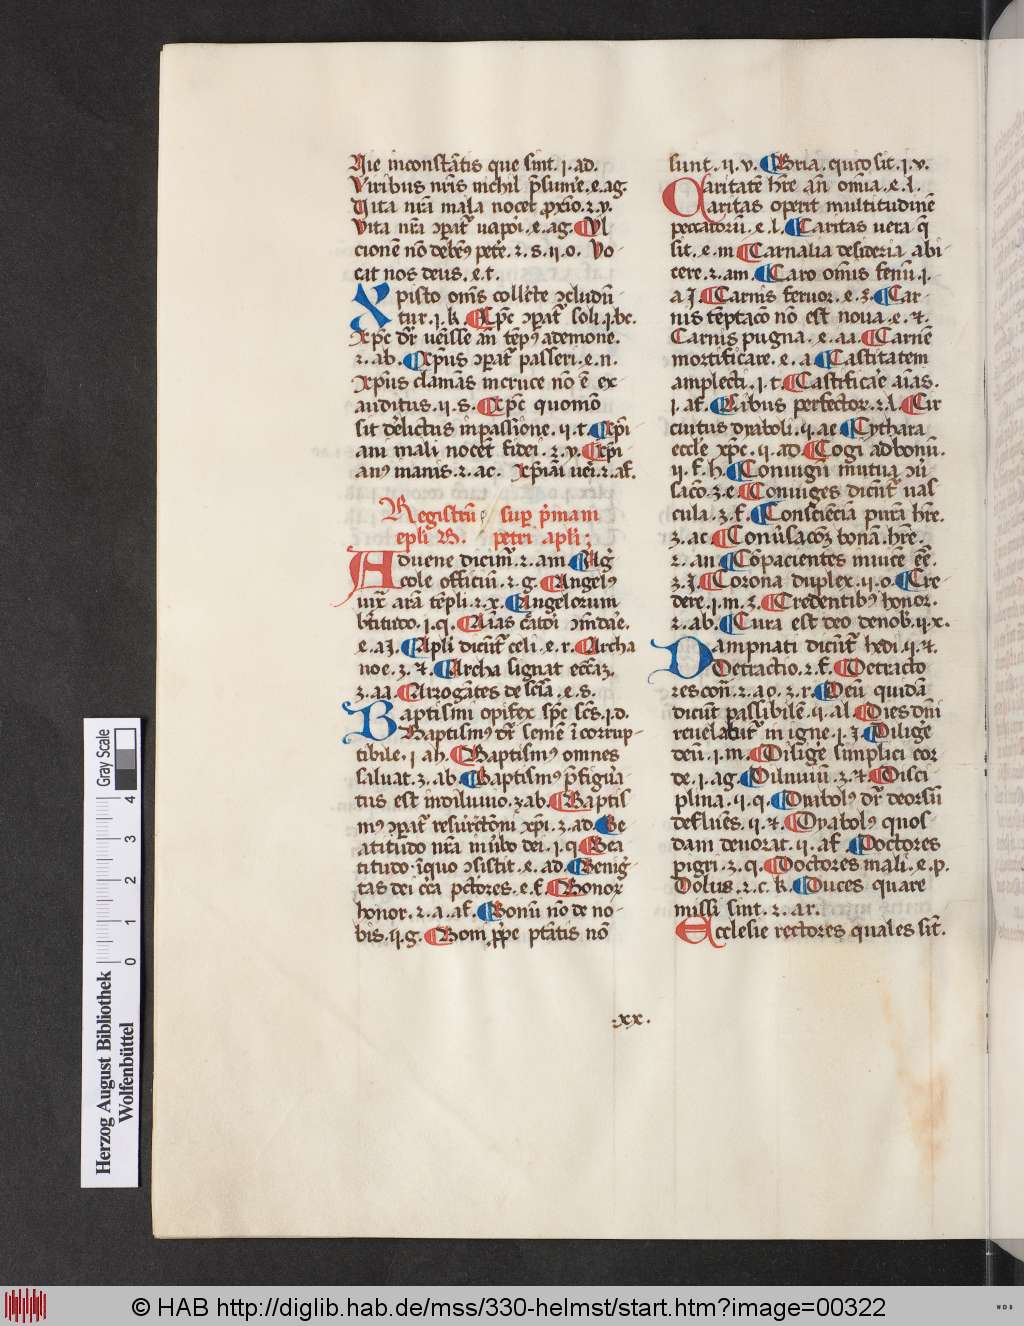 Vie inconstãtis que sint. j. ad.
Viribus nr̃is nichil p̃sum'e. e. ag.
Vita nr̃a mala nocet ꝓxĩo. z. y.
Vita nr̃a ꝯparat᷑ vapoi. e. ag. Vl
cionem nõ debem᷒ pete. z. s. ij. o. Vo-
cat nos deus. e. t.
Xpisto om̃s collecte ꝯcludũ
tur. j. k. Xp̃c ꝯparat᷑ soli. j. bc.
Xp̃c dr̃ venisse an̄ temp᷒ ademone.
z. ab. Xp̃us ꝯparat᷑ passeri. e. n.
Xp̃us clamãs in cruce nõ ẽ ex-
auditus. ij. s. Xp̃c quomõ
sit delictus in passione. ij. t. Xp̃i
ani mali nocet fidei. z. y. Xp̃i
an᷒ manis. z. ac. Xp̃iãi vei. z. af.
Registrũ sup p̃mam
ep̃li B. petri apl̃i;
Advene dicim᷒. z. am. Ag̃
cole officiũ. z. g. Angel᷒
vir̃ arã tẽpli. z. x. Angelorum
btitudo. j. q. Aĩas c̃atoi ꝯm̃dae.
e. aj. Apl̃i dicũt᷑ celi. e. r. Archa
noe. 3. &. Archa signat ecc̃az.
3. aa. Arrogãtes de scĩa. e. s.
Baptismi opifex sp̃c sc̃s. j. d.
Baptism᷒ dr̃ semẽ ĩcorrup-
tibile. j. ah. Baptism᷒ omnes
saluat. 3. ab. Baptism᷒ p̃figũa
tus est in diluuio. 3 ab. Baptis
m᷒ ꝯparat᷑ resurectõni xp̃i. 3. ad. Be
atitudo nr̃a in ũbo dei. j. q Bea
titudo ĩquo ꝯsistit. e. ad. Benig̃
tas dei cc̃a pctores. e. f. Bonor
honor. z. a. af. Bonũ nõ de no-
bis. ij. g. Bom ꝓpe ptãtis nõ
sunt. ij. v. Bria. quid sit. j. v.
Caritatẽ hr̃e an̄ om̃ia. e. l.
Caritas operit multitudinẽ
peccatorũ. e. l. Caritas vera q̃
sit. e. m Carnalia desideria abi
cere. z. am. Caro om̃is fenũ. j.
aj. Carnis feruor. e. 3. Car-
nis tẽptacõ nõ est noua. e. &.
Carnis pugna. e. aa. Carnẽ
mortificare. e. a Castitatem
amplecti. j. t. Castificãe aĩas.
j. af. Cibus perfector. z. l. Cir
cuitus dyaboli. ij. ae Cythara
eccl̃e xp̃c. ij. ad Cogi ad bonũ.
ij. f. h. Coniugũ mutua ꝯũ
sacõ. 3. e. Coniuges dicũt᷑ vas
cula. 3. f. Consciẽcia purã hr̃e.
3. ac Conũsacõz bonã. hr̃e.
z. an Cõpacientes inuicẽ eẽ.
3. J. Corona duplex. ij. o. Cre-
dere. j. m. 3. Credentib᷒ honor.
z. ab. Cura est deo de nob̃. ij. x.
Dampnati dicũt᷑ hedi. ij. &.
Detractio. z. f. Detracto
res coñ. z. ao. 3. r. Deũ quidã
dicũt passibilẽ. ij. al Dies dñi
reuelabit᷑ in igne. j. 3. Dilige
deũ. j. m. Diliġe simplici cor
de. j. ag. Diluuiũ. 3. & Disci
plina. ij. q. Dyabol᷒ dr̃ deorsũ
defluẽs. ij. &. Dyabol᷒ quos
dam deuorat. ij. af. Doctores
pigri. 3. q. Doctores mali. e. p.
Dolus. z. c. k. Duces quare
missi sint. z. ar.
Ecclesie rectores quales sĩt.
.xx.
Herzog August Bibliothek
Wolfenbüttel
0 1 2 3 4
Gray Scale
© HAB http://diglib.hab.de/mss/330-helmst/start.htm?image=00322